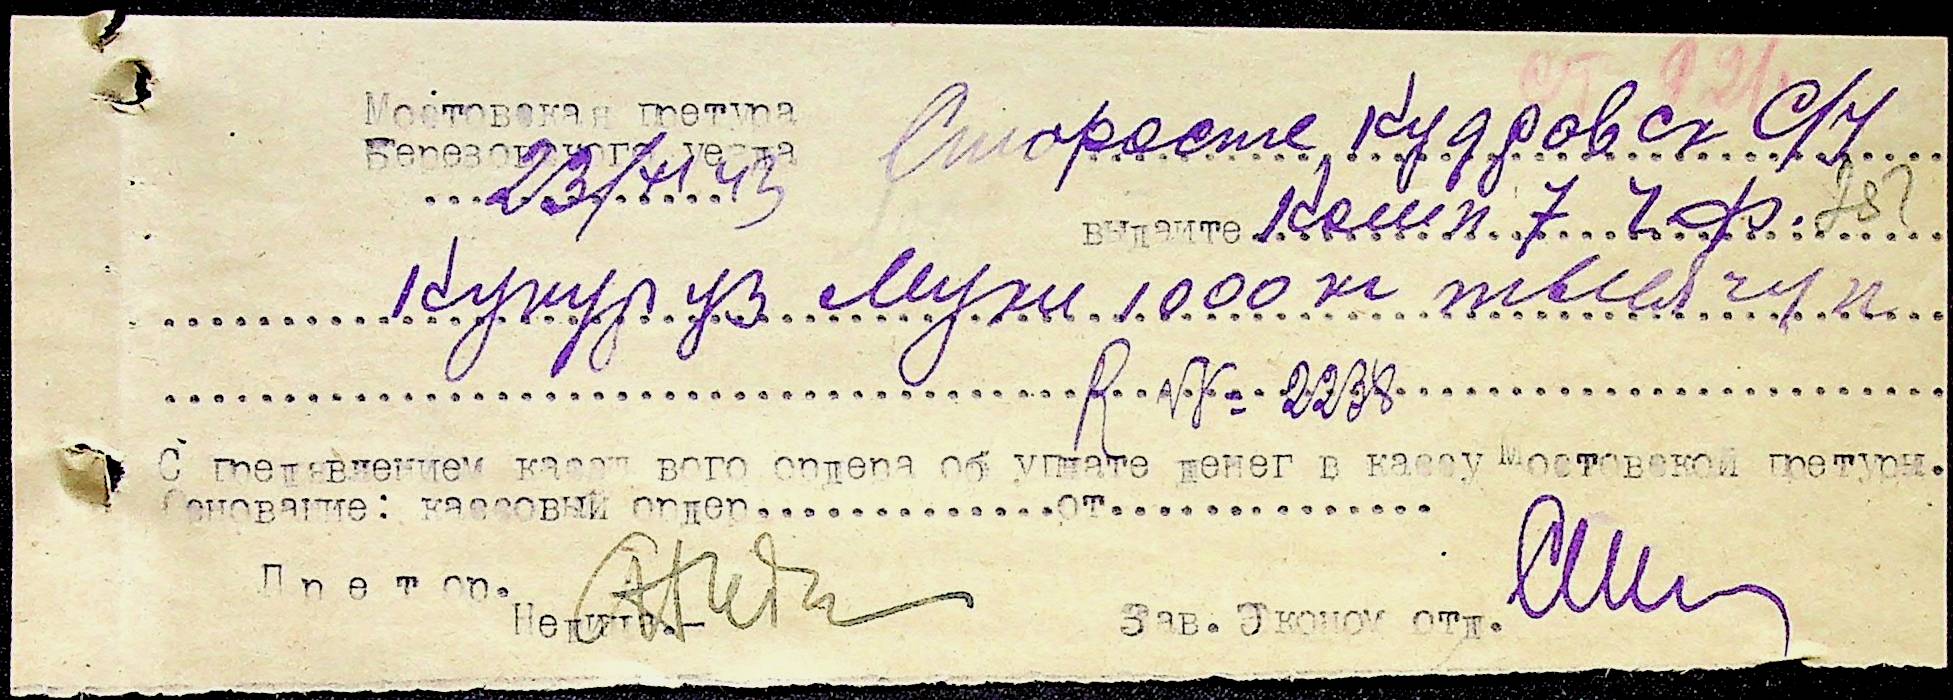 ст 921
Мостовская претура
Березовского уезда
23/XI 43
Старосте Кудровск С/У
выдайте Комп 7 Чф. 787
Кукуруз Муки 1000 кг тысячу к
R №= 2238
С предявлением кассового ордера об уплате денег в кассу Мостовской претуры.
Основание: кассовый ордер..............от................
Претор.
Зав. Эконом отд.